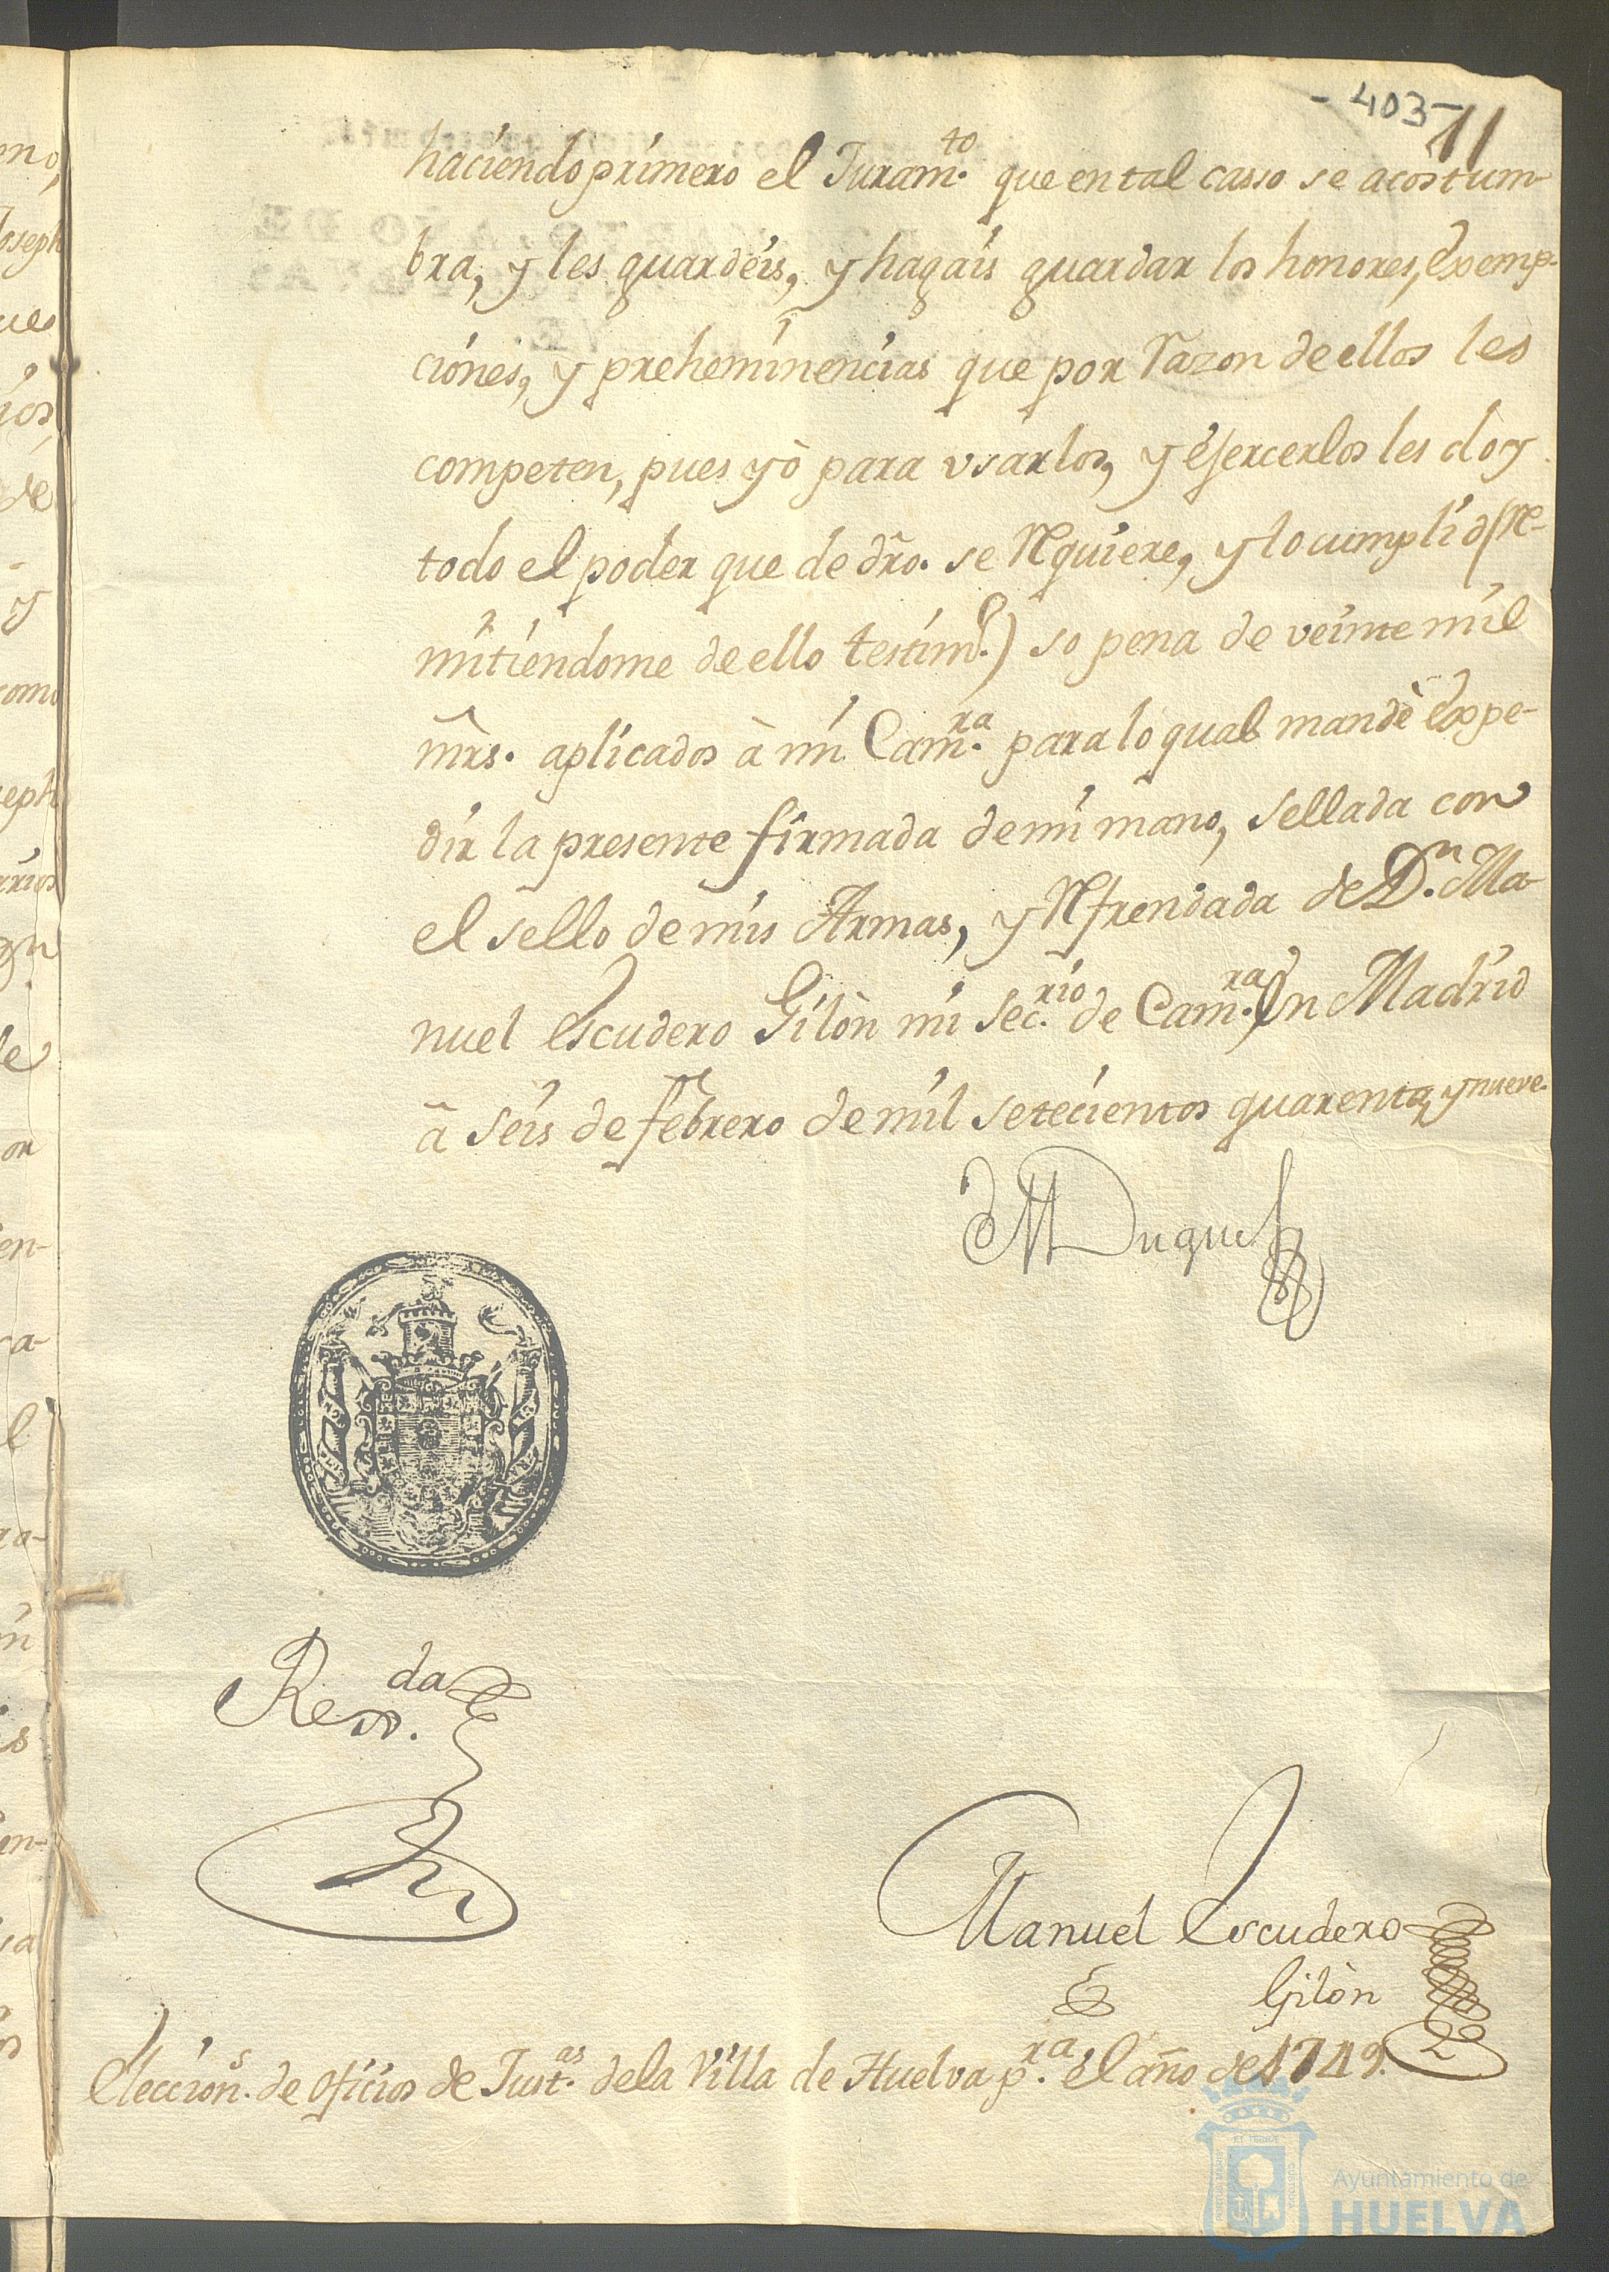 - 403 -
11
haciendo primero el Juram.to que en tal casso se acostum-
bra, y les guardéis, y hagáis guardar los honores, Exemp-
ciones, y preheminencias que por razon de ellos les
competen, pues yò para vsarlos, y ejercerlos les doy
todo el poder que de dr̃o. se requiere, y lo cumplid (re-
mitiendome de ello testim.o) so pena de veinte mil
mr̃s. aplicados à mi Cam.ra para lo qual mandè Expe-
dir la presente firmada de mi mano, sellada con
el sello de mis Armas, y refrendada de D.n Ma-
nuel Escudero Gilòn mi Sec.rio de Cam.ra En Madrid
à seis de febrero de mil setecientos quarenta, y nueve.
El Duque
Rexx.da
Manuel Escudero
Gilòn
Eleccion.s de oficios de Just.as de la Villa de Huelva p.ra el año de 1749.
Ayuntamiento de
HUELVA